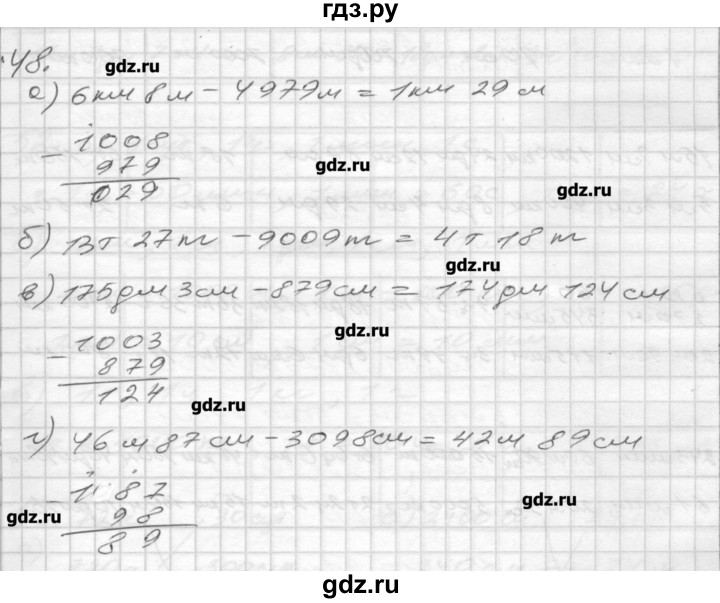 гдз.ру
48.
gdz.ru
а) 6км 8м - 4979м = 1км 29м
- 1008
979
029
gdz.ru
gdz.ru
б) 13т 27т - 9009т = 4т 18т
gdz.ru
в) 175дм 3см - 879см = 174дм 124см
gdz.ru
- 1003
879
124
gdz.ru
г) 46м 87см - 3098см = 42м 89см
- 187
98
89
gdz.ru
gdz.ru
gdz.ru